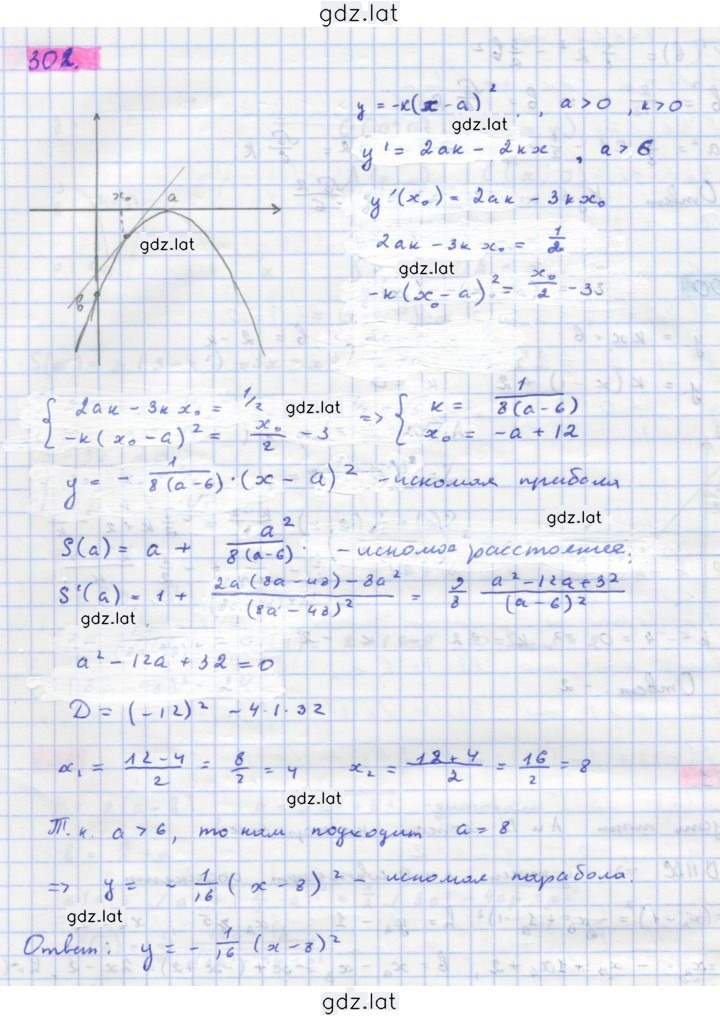 gdz.lat
302.
y = -к(x - a)², a > 0, к > 0
gdz.lat
y' = 2ак - 2кх, a > 6
y'(x₀) = 2ак - 3кх₀
x₀ a
gdz.lat
2ак - 3к х₀ = 1/2
gdz.lat
-к(x₀ - a)² = x₀/2 - 33
в
{ 2ак - 3к х₀ = 1/2 gdz.lat => { к = 1/8(a-6)
-к(x₀ - a)² = x₀/2 - 3 x₀ = -a + 12
y = - 1/8(a-6) · (x - a)² - искомая прибола
gdz.lat
S(a) = a + a²/8(a-6). - искомое расстояние.
S'(a) = 1 + 2a(8a-48)-8a²/(8a-48)² = 9/8 a²-12a+32/(a-6)²
gdz.lat
a² - 12a + 32 = 0
D = (-12)² - 4·1·32
x₁ = 12-4/2 = 8/2 = 4 x₂ = 12+4/2 = 16/2 = 8
gdz.lat
Т.к. a > 6, то нам подходит a = 8
=> y = - 1/16 (x - 8)² - искомая парабола.
gdz.lat
Ответ: y = - 1/16 (x - 8)²
gdz.lat